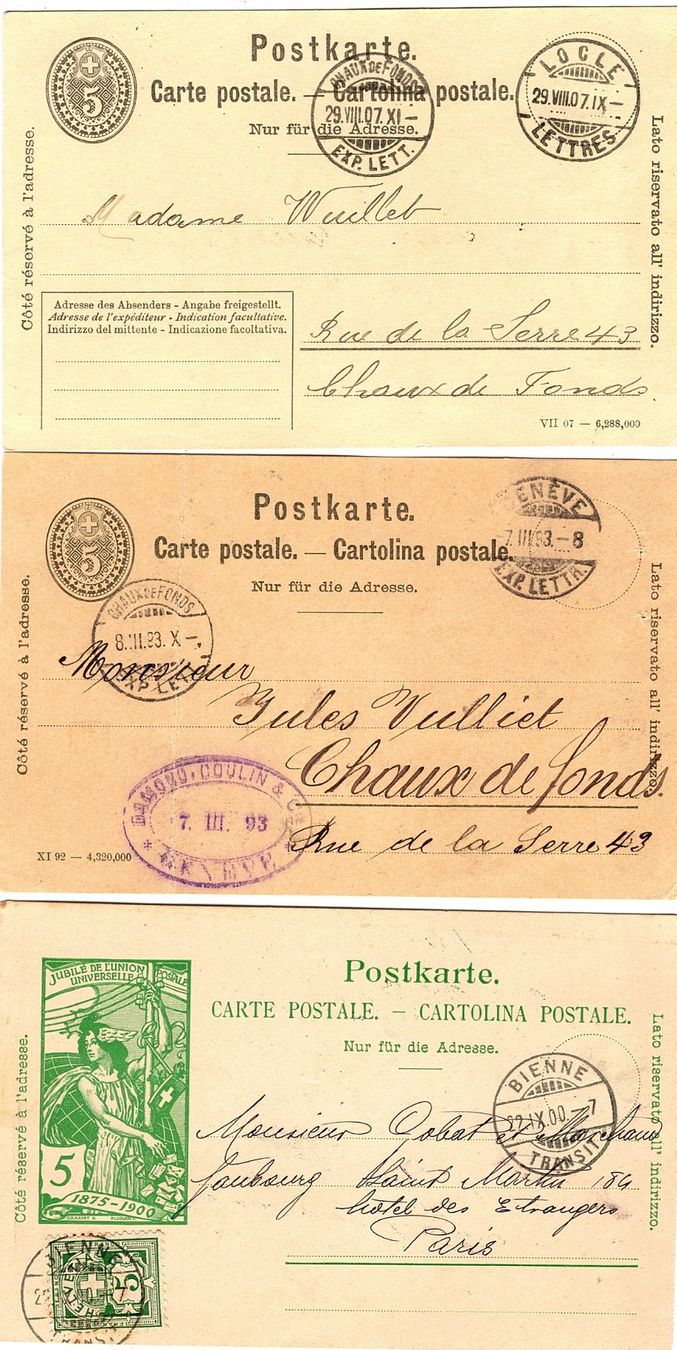 Postkarte.
Carte postale. — Cartolina postale.
Nur für die Adresse.
5
CHAUX DE FONDS
29.VIII.07.XI–
EXP. LETT.
LOCLE
29.VIII.07.IX–
LETTRES
Côté réservé à l'adresse.
Lato riservato all' indirizzo.
Madame Wuillet
Adresse des Absenders - Angabe freigestellt.
Adresse de l'expéditeur - Indication facultative.
Indirizzo del mittente - Indicazione facoltativa.
Rue de la Serre 43
Chaux de Fonds
VII 07 — 6,288,000
Postkarte.
Carte postale. — Cartolina postale.
Nur für die Adresse.
5
GENÈVE
7.III.93.–8
EXP. LETTR.
CHAUX DE FONDS
8.III.93.X–
EXP. LET
Côté réservé à l'adresse.
Lato riservato all' indirizzo.
Monsieur
Jules Vulliet
Chaux de fonds.
Rue de la Serre 43
COULIN & C
7. III. 93
GENÈVE
XI 92 — 4,320,000
JUBILÉ DE L'UNION
UNIVERSELLE POSTALE
5
1875-1900
Postkarte.
CARTE POSTALE. — CARTOLINA POSTALE.
Nur für die Adresse.
BIENNE
22.IX.00.–7
TRANSIT
Côté réservé à l'adresse.
Lato riservato all' indirizzo.
Monsieur Gobat et Marchand
Faubourg Saint Martin
hôtel des Etrangers
Paris
BIENNE
HELVETIA
5
TRANSIT